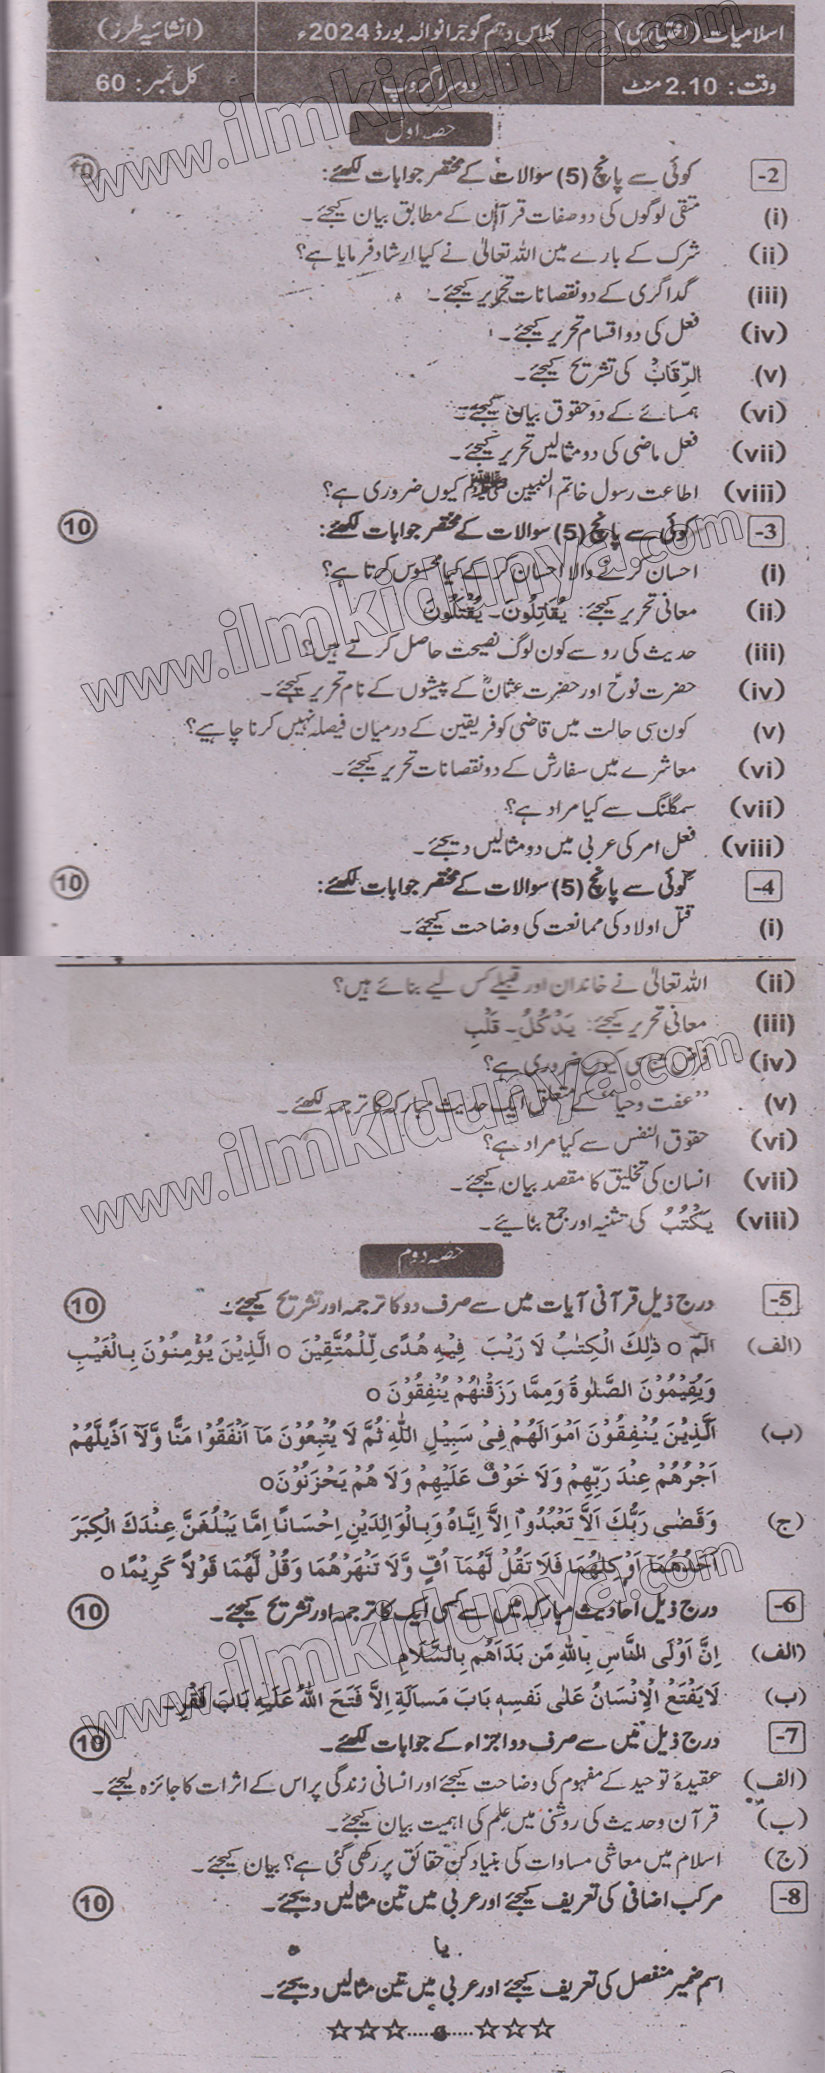 اسلامیات (اختیاری) کلاس دہم گوجرانوالہ بورڈ 2024ء (انشائیہ طرز)
وقت: 2.10 منٹ دوسرا گروپ کل نمبر: 60
حصہ اول
-2 کوئی سے پانچ (5) سوالات کے مختصر جوابات لکھئے:
(i) متقی لوگوں کی دو صفات قرآن کے مطابق بیان کیجئے۔
(ii) شرک کے بارے میں اللہ تعالیٰ نے کیا ارشاد فرمایا ہے؟
(iii) گداگری کے دو نقصانات تحریر کیجئے۔
(iv) فعل کی دو اقسام تحریر کیجئے۔
(v) الرِّقَابُ کی تشریح کیجئے۔
(vi) ہمسائے کے دو حقوق بیان کیجئے۔
(vii) فعل ماضی کی دو مثالیں تحریر کیجئے۔
(viii) اطاعت رسول خاتم النبیین ﷺ کیوں ضروری ہے؟
-3 کوئی سے پانچ (5) سوالات کے مختصر جوابات لکھئے: 10
(i) احسان کرنے والا احسان کر کے کیا محسوس کرتا ہے؟
(ii) معانی تحریر کیجئے: يُقَاتِلُونَ۔ يُقْتَلُونَ
(iii) حدیث کی رو سے کون لوگ نصیحت حاصل کرتے ہیں؟
(iv) حضرت نوحؑ اور حضرت عثمانؓ کے پیشوں کے نام تحریر کیجئے۔
(v) کون سی حالت میں قاضی کو فریقین کے درمیان فیصلہ نہیں کرنا چاہیے؟
(vi) معاشرے میں سفارش کے دو نقصانات تحریر کیجئے۔
(vii) سمگلنگ سے کیا مراد ہے؟
(viii) فعل امر کی عربی میں دو مثالیں دیجئے۔
-4 کوئی سے پانچ (5) سوالات کے مختصر جوابات لکھئے: 10
(i) قتل اولاد کی ممانعت کی وضاحت کیجئے۔
(ii) اللہ تعالیٰ نے خاندان اور قبیلے کس لیے بنائے ہیں؟
(iii) معانی تحریر کیجئے: يَدْخُلُ۔ قَلْبِ
(iv) کیوں ضروری ہے؟
(v) ”عفت وحیا“ کے متعلق ایک حدیث مبارکہ کا ترجمہ لکھئے۔
(vi) حقوق النفس سے کیا مراد ہے؟
(vii) انسان کی تخلیق کا مقصد بیان کیجئے۔
(viii) يَكْتُبُ کی تثنیہ اور جمع بنائیے۔
حصہ دوم
-5 درج ذیل قرآنی آیات میں سے صرف دو کا ترجمہ اور تشریح کیجئے۔ 10
(الف) الٓمّٓ ○ ذٰلِكَ الْكِتٰبُ لَا رَيْبَ فِيْهِ هُدًى لِّلْمُتَّقِيْنَ ○ الَّذِيْنَ يُؤْمِنُوْنَ بِالْغَيْبِ
وَيُقِيْمُوْنَ الصَّلٰوةَ وَمِمَّا رَزَقْنٰهُمْ يُنْفِقُوْنَ ○
(ب) اَلَّذِيْنَ يُنْفِقُوْنَ اَمْوَالَهُمْ فِيْ سَبِيْلِ اللّٰهِ ثُمَّ لَا يُتْبِعُوْنَ مَآ اَنْفَقُوْا مَنًّا وَّلَآ اَذًىلَّهُمْ
اَجْرُهُمْ عِنْدَ رَبِّهِمْ وَلَا خَوْفٌ عَلَيْهِمْ وَلَا هُمْ يَحْزَنُوْنَ○
(ج) وَقَضٰى رَبُّكَ اَلَّا تَعْبُدُوْٓا اِلَّآ اِيَّاهُ وَبِالْوَالِدَيْنِ اِحْسَانًا اِمَّا يَبْلُغَنَّ عِنْدَكَ الْكِبَرَ
اَحَدُهُمَآ اَوْ كِلٰهُمَا فَلَا تَقُلْ لَّهُمَآ اُفٍّ وَّلَا تَنْهَرْهُمَا وَقُلْ لَّهُمَا قَوْلًا كَرِيْمًا ○
-6 درج ذیل احادیث مبارکہ میں سے کسی ایک کا ترجمہ اور تشریح کیجئے۔ 10
(الف) اِنَّ اَوْلَى النَّاسِ بِاللّٰهِ مَن بَدَاَهُم بِالسَّلَامِ
(ب) لَا يَفْتَحُ الْاِنْسَانُ عَلٰى نَفْسِهٖ بَابَ مَسأَلَةِ اِلَّا فَتَحَ اللّٰهُ عَلَيْهِ بَابَ فَقْرٍ۔
-7 درج ذیل میں سے صرف دو اجزاء کے جوابات لکھئے۔ 10
(الف) عقیدۂ توحید کے مفہوم کی وضاحت کیجئے اور انسانی زندگی پر اس کے اثرات کا جائزہ لیجئے۔
(ب) قرآن وحدیث کی روشنی میں علم کی اہمیت بیان کیجئے۔
(ج) اسلام میں معاشی مساوات کی بنیاد کن حقائق پر رکھی گئی ہے؟ بیان کیجئے۔
-8 مرکب اضافی کی تعریف کیجئے اور عربی میں تین مثالیں دیجئے۔ 10
یا
اسم ضمیر منفصل کی تعریف کیجئے اور عربی میں تین مثالیں دیجئے۔
www.ilmkidunya.com
www.ilmkidunya.com
www.ilmkidunya.com
www.ilmkidunya.com